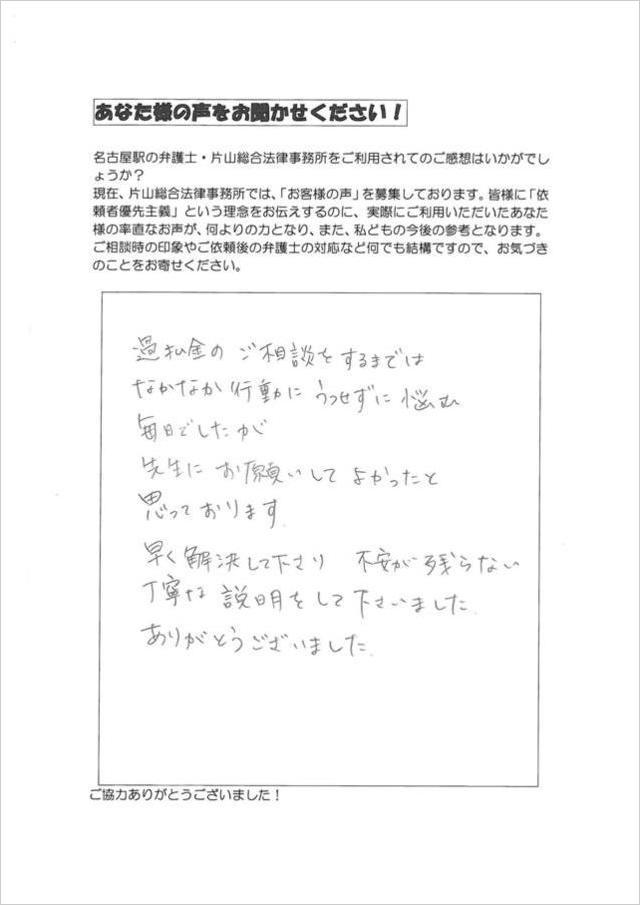 あなた様の声をお聞かせください！
名古屋駅の弁護士・片山総合法律事務所をご利用されてのご感想はいかがでし
ょうか？
現在、片山総合法律事務所では、「お客様の声」を募集しております。皆様に「依
頼者優先主義」という理念をお伝えするのに、実際にご利用いただいたあなた
様の率直なお声が、何よりの力となり、また、私どもの今後の参考となります。
ご相談時の印象やご依頼後の弁護士の対応など何でも結構ですので、お気づき
のことをお寄せください。
過払金の ご相談をするまでは
なかなか行動に うつせずに 悩む
毎日でしたが
先生に お願いして よかったと
思っております
早く解決して下さり 不安が残らない
丁寧な 説明をして下さいました。
ありがとうございました。
ご協力ありがとうございました！